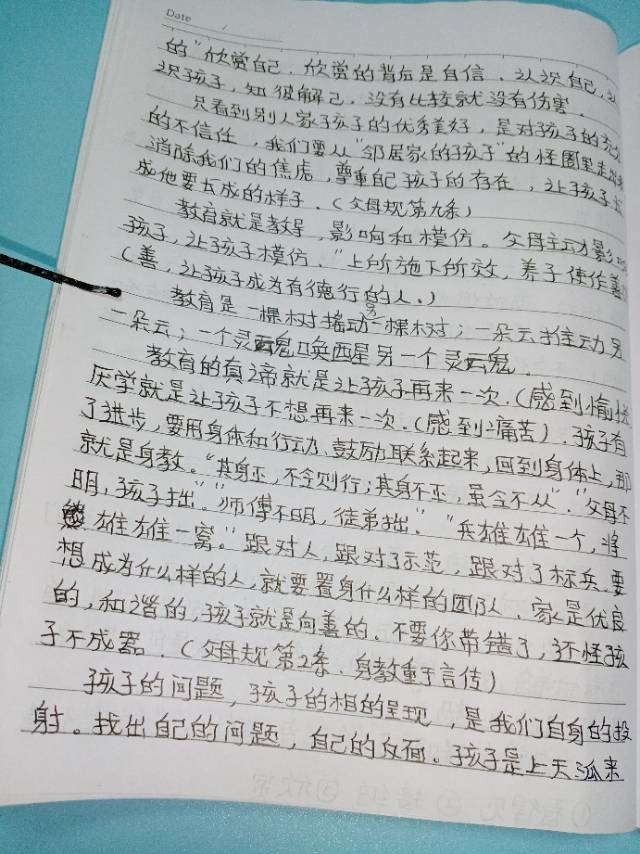 Date
的“欣赏自己.欣赏的背后是自信,认识自己,认
识孩子,知彼解己,没有比较就没有伤害.
只看到别人家孩子的优秀美好,是对孩子的
的不信任,我们要从“邻居家的孩子”的怪圈里走出来
消除我们的焦虑,尊重自己孩子的存在,让孩子长
成他要长成的样子.(父母规第九条)
教育就是教导,影响和模仿。父母主动影响
孩子,让孩子模仿.“上所施下所效,养子使作善
(善,让孩子成为有德行的人.)
教育是一棵树摇动另一棵树;一朵云推动另
一朵云;一个灵魂唤醒另一个灵魂.
教育的真谛就是让孩子再来一次.(感到愉悦
厌学就是让孩子不想再来一次.(感到痛苦).孩子有
了进步,要用身体和行动、鼓励联系起来,回到身体上,那
就是身教。“其身正,不令则行;其身不正,虽令不从”.“父母不
明,孩子拙”.“师傅不明,徒弟拙”.“兵雄雄一个,将
雄雄一窝.”跟对人,跟对了示范,跟对了标兵.要
想成为什么样的人,就要置身什么样的团队.家是优良
的,和谐的,孩子就是向善的.不要你带错了,还怪孩
子不成器.(父母规第2条.身教重于言传)
孩子的问题,孩子的相的呈现,是我们自身的投
射。找出自己的问题,自己的负面.孩子是上天派来